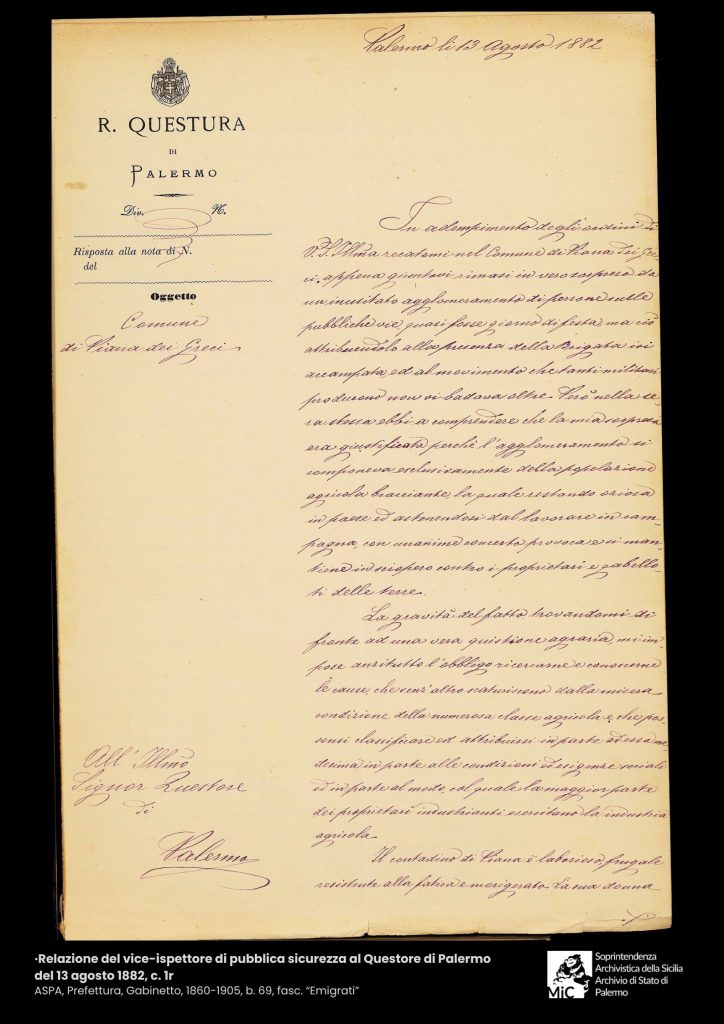 Palermo li 13 Agosto 1882
R. QUESTURA
DI
PALERMO
Div. N.
Risposta alla nota di N.
del
Oggetto
Comune
di Piana dei Greci
In adempimento degli ordini di
V. S. Illma recatomi nel Comune di Piana dei Gre
ci, appena giuntovi rimasi in vero sorpreso da
un inusitato agglomeramento di persone sulle
pubbliche vie, quasi fosse giorno di festa, ma ciò
attribuendolo alla presenza della Brigata ivi
accampata, ed al movimento che tanti militari
producono non vi badava oltre. Però nella se
ra stessa ebbi a comprendere che la mia sorpresa
era giustificata perchè l'agglomeramento si
componeva esclusivamente della popolazione
agricola bracciante, la quale restando oziosa
in paese ed astenendosi dal lavorare in cam
pagna, con unanime concerto provoca e si man
tiene in isciopero contro i proprietari e gabello
ti delle terre.
La gravità del fatto, trovandomi di
fronte ad una vera quistione agraria, m'im
pose anzitutto l'obbligo ricercarne e conoscerne
le cause, che senz'altro scaturiscono dalla misera
condizione della numerosa classe agricola e che pos
sonsi classificare ed attribuirsi in parte ad essa me
desima, in parte alle condizioni ed esigenze sociali
ed in parte al modo, col quale la maggior parte
dei proprietari industrianti esercitano la industria
agricola.
Il contadino di Piana è laborioso, frugale
resistente alla fatica e morigerato. La sua donna
All' Illmo
Signor Questore
di
Palermo
·Relazione del vice-ispettore di pubblica sicurezza al Questore di Palermo
del 13 agosto 1882, c. 1r
ASPA, Prefettura, Gabinetto, 1860-1905, b. 69, fasc. “Emigrati”
MiC
Soprintendenza
Archivistica della Sicilia
Archivio di Stato di
Palermo